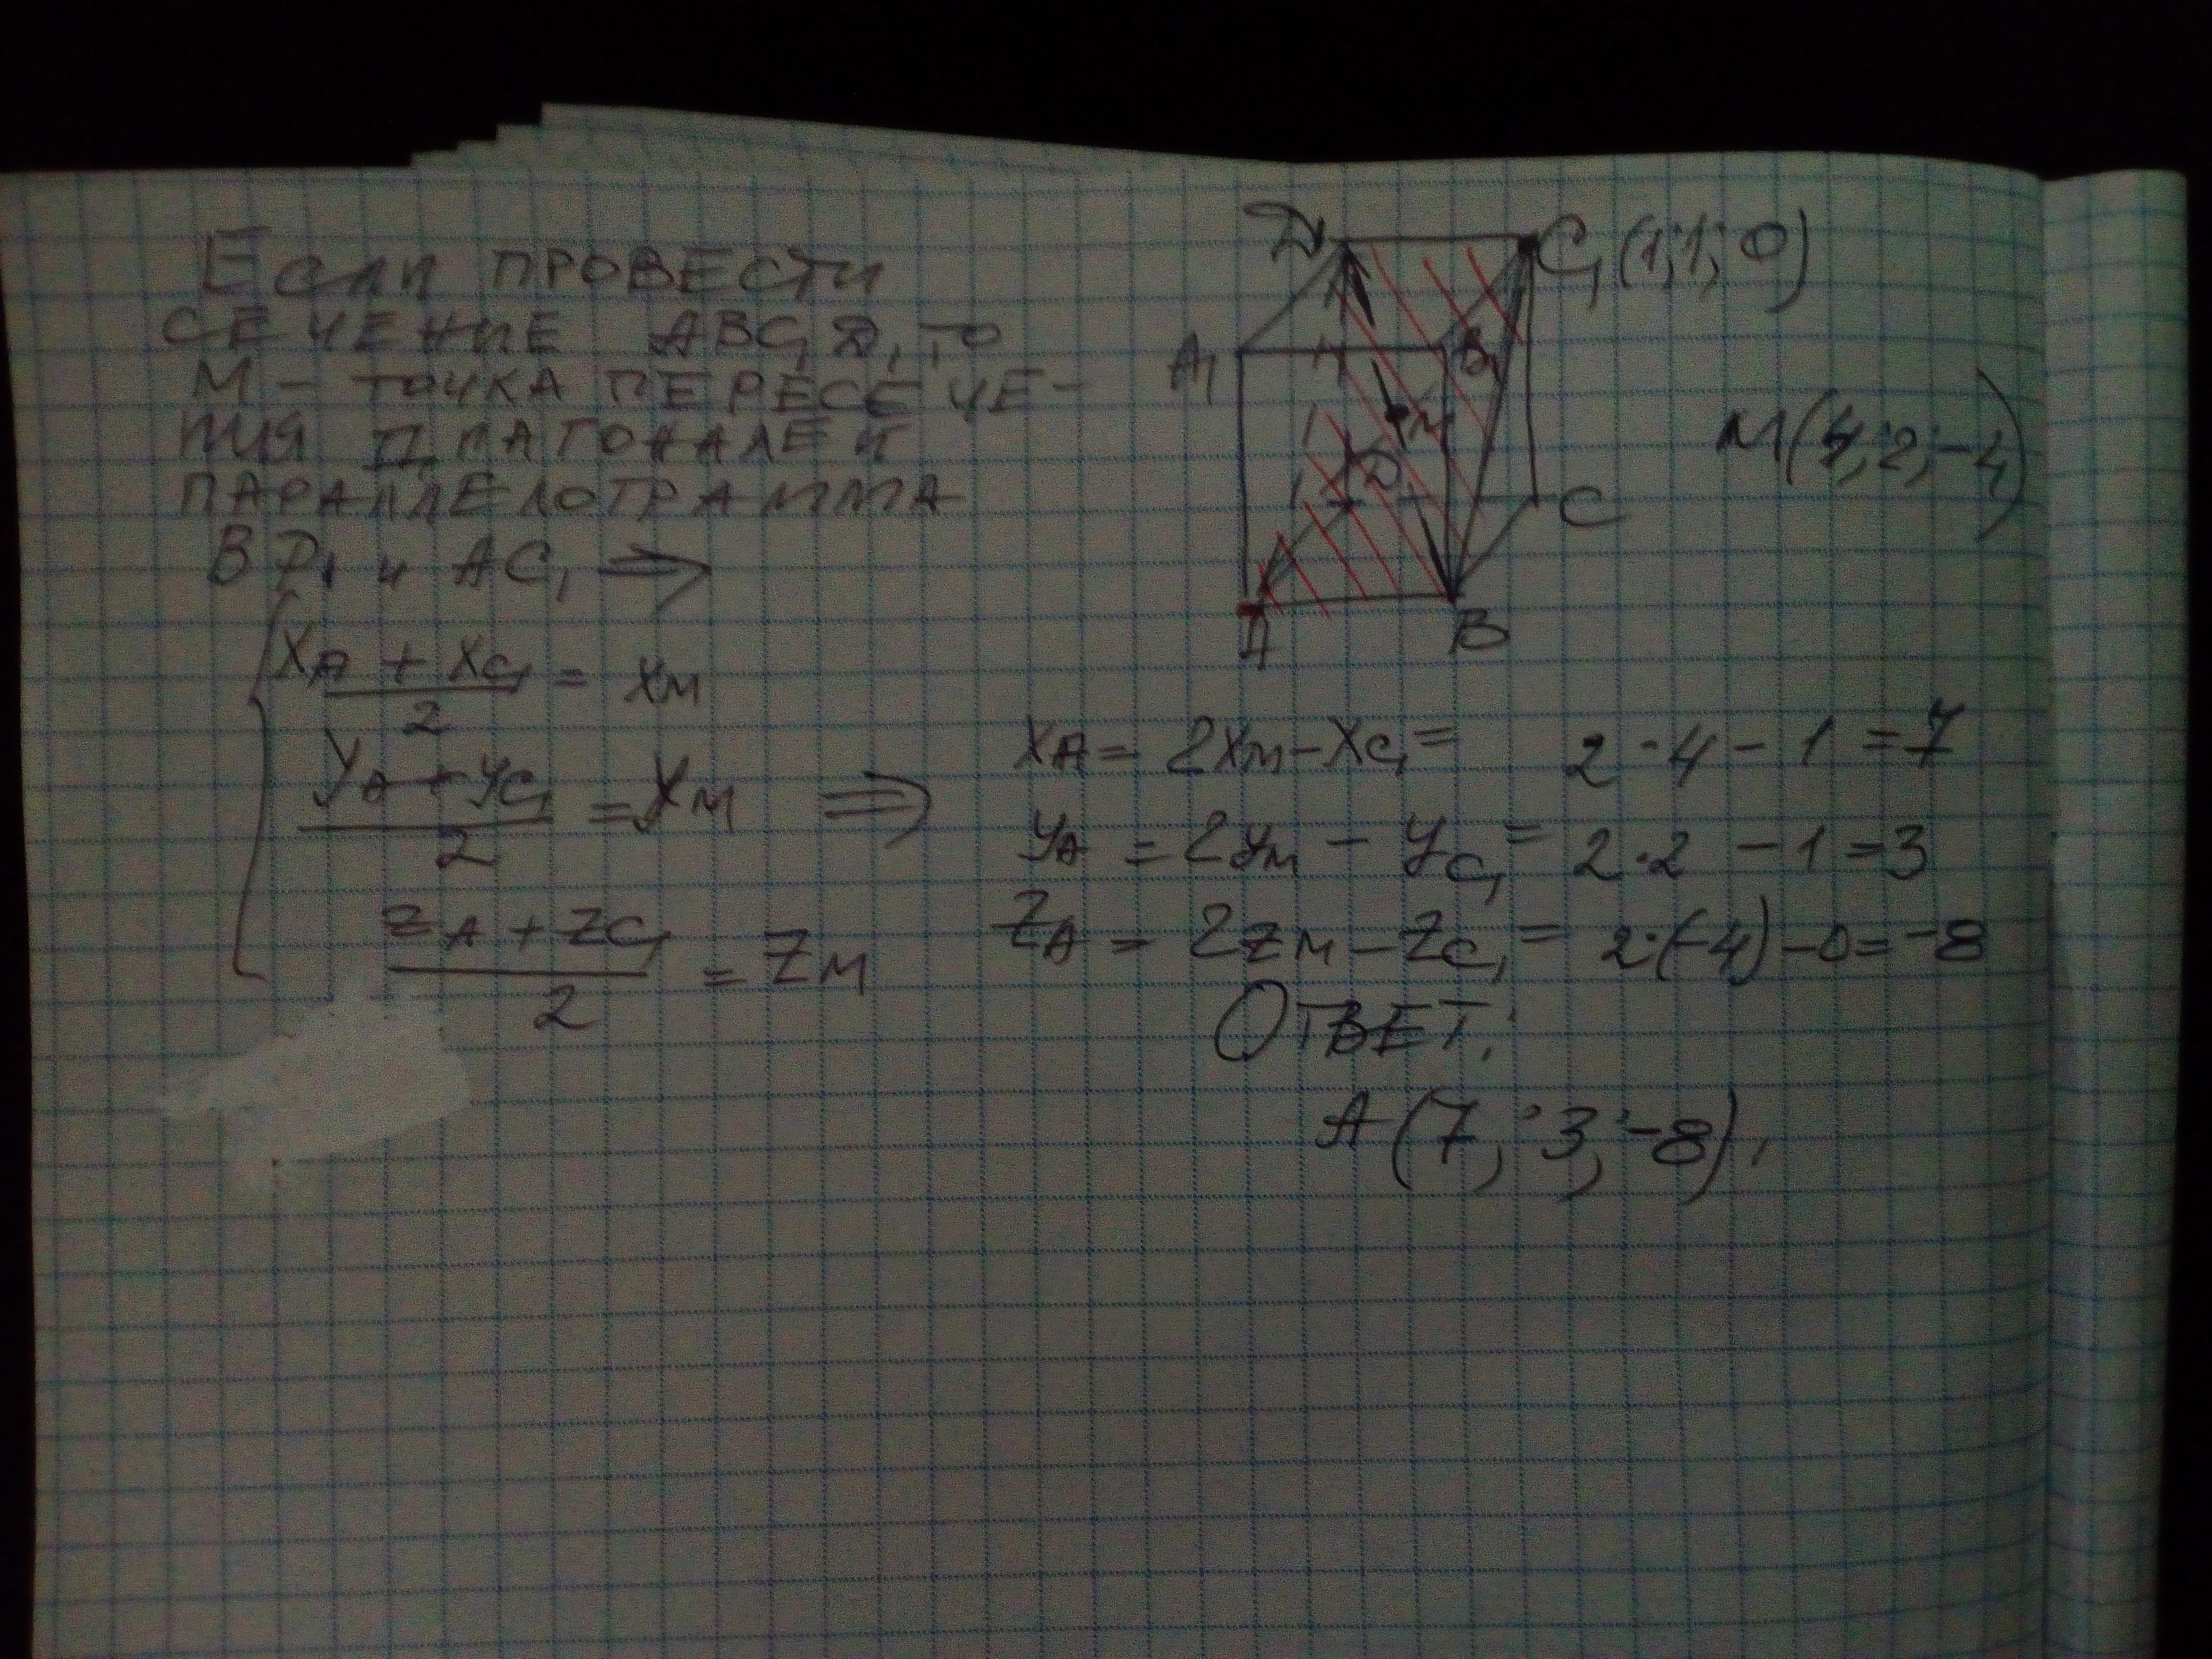 ЕСЛИ ПРОВЕСТИ
СЕЧЕНИЕ ABC₁D₁, ТО
М – ТОЧКА ПЕРЕСЕЧЕ-
НИЯ ДИАГОНАЛЕЙ
ПАРАЛЛЕЛОГРАММА
BD₁ и AC₁ ⇒
(xA + xC₁)/2 = xM
(yA + yC₁)/2 = yM ⇒
(zA + zC₁)/2 = zM
D₁ C₁(1; 1; 0)
A₁ B₁
M M(4; 2; -4)
D C
A B
xA = 2xM – xC₁ = 2·4 – 1 = 7
yA = 2yM – yC₁ = 2·2 – 1 = 3
zA = 2zM – zC₁ = 2·(-4) – 0 = -8
ОТВЕТ:
A(7; 3; -8).